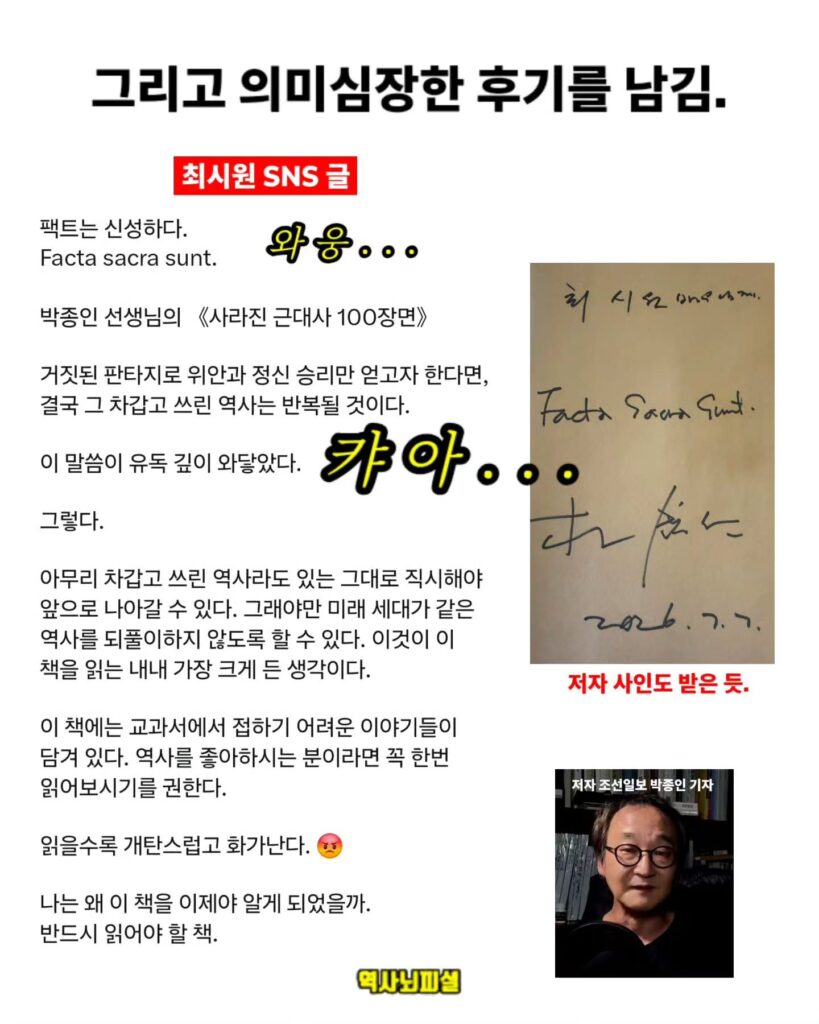 그리고 의미심장한 후기를 남김.
최시원 SNS 글
팩트는 신성하다.
Facta sacra sunt.
와웅...
박종인 선생님의 《사라진 근대사 100장면》
거짓된 판타지로 위안과 정신 승리만 얻고자 한다면,
결국 그 차갑고 쓰린 역사는 반복될 것이다.
이 말씀이 유독 깊이 와닿았다.
캬아...
그렇다.
아무리 차갑고 쓰린 역사라도 있는 그대로 직시해야
앞으로 나아갈 수 있다. 그래야만 미래 세대가 같은
역사를 되풀이하지 않도록 할 수 있다. 이것이 이
책을 읽는 내내 가장 크게 든 생각이다.
이 책에는 교과서에서 접하기 어려운 이야기들이
담겨 있다. 역사를 좋아하시는 분이라면 꼭 한번
읽어보시기를 권한다.
읽을수록 개탄스럽고 화가난다. 😡
나는 왜 이 책을 이제야 알게 되었을까.
반드시 읽어야 할 책.
최시원
Facta Sacra Sunt.
2026. 7. 7.
저자 사인도 받은 듯.
저자 조선일보 박종인 기자
역사뇌피셜